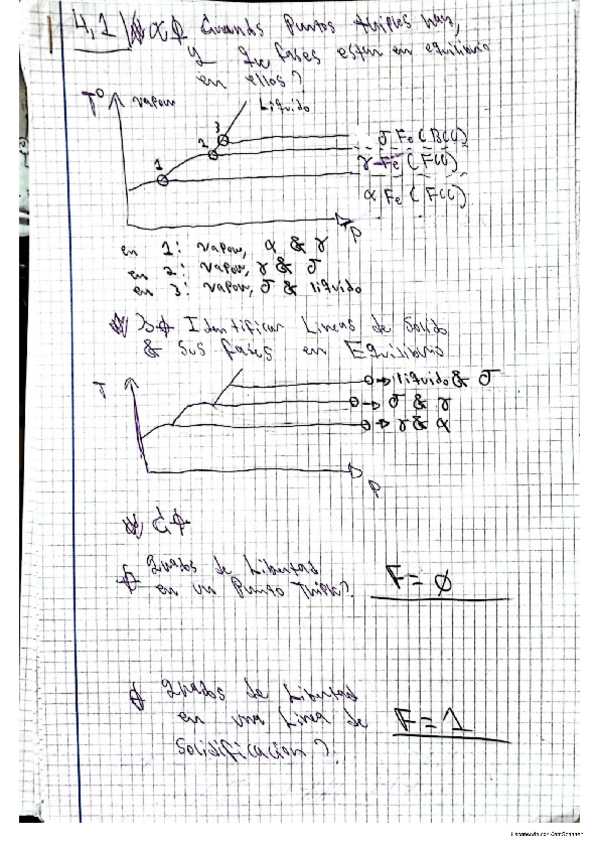 4,1 a¢ Cuando Puntos triples hay,
y que fases estan en equilibrio
en ellos?
T° vapor Liquido
1 2 3
δ Fe (BCC)
γ-Fe (FCC)
α Fe (FCC)
P
en 1: vapor, α & γ
en 2: vapor, γ & δ
en 3: vapor, δ & liquido
b¢ Identificar Lineas de Solido
& sus fases en Equilibrio
T
→ liquido & δ
→ δ & γ
→ γ & α
P
c¢
Grados de Libertad
en un Punto Triple?
F = ∅
Grados de Libertad
en una Linea de
Solidificacion?
F = 1